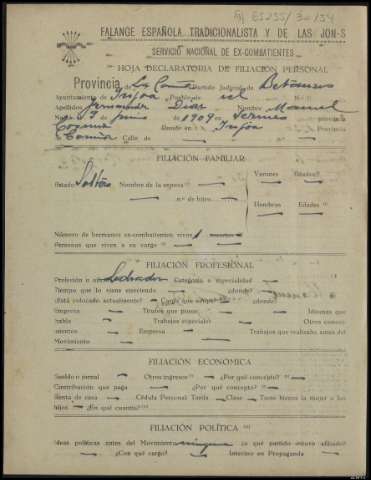 FALANGE ESPAÑOLA TRADICIONALISTA Y DE LAS JON-S
SERVICIO NACIONAL DE EX-COMBATIENTES
HOJA DECLARATORIA DE FILIACIÓN PERSONAL
Provincia de La Coruña Partido Judicial de Betanzos
Ayuntamiento de Irijoa Pueblo de id
Apellidos Fernandez Diaz Nombre Manuel
de 1909 en
Coruña Reside en Irijoa Provincia
Coruña Calle de — n.º —
FILIACIÓN FAMILIAR
Varones Edades?
Estado Soltero Nombre de la esposa —
n.º de hijos —
Hembras Edades
Número de hermanos ex-combatientes vivos 1
Personas que viven a su cargo —
FILIACIÓN PROFESIONAL
Profesión u Labrador Categoría o especialidad —
Tiempo que lo viene ejerciendo — ¿dónde? —
¿Está colocado actualmente? — Cargo que ocupa — ¿dónde?
Empresa — Títulos que posee — Idiomas que
habla — Trabajos especiales — Otros conoci-
mientos — Empresa — Trabajos que realizaba antes del
Movimiento —
FILIACIÓN ECONÓMICA
Sueldo o jornal — Otros ingresos — ¿Por qué concepto? —
Contribución que paga — ¿Por qué concepto? —
Renta de casa — Cédula Personal Tarifa — Clase — Tiene bienes la mujer o los
hijos — ¿En qué cuantía? —
FILIACIÓN POLÍTICA
Ideas políticas antes del Movimiento ninguna ¿a qué partido estuvo afiliado?
— ¿Con qué cargo? — Intervino en Propaganda —